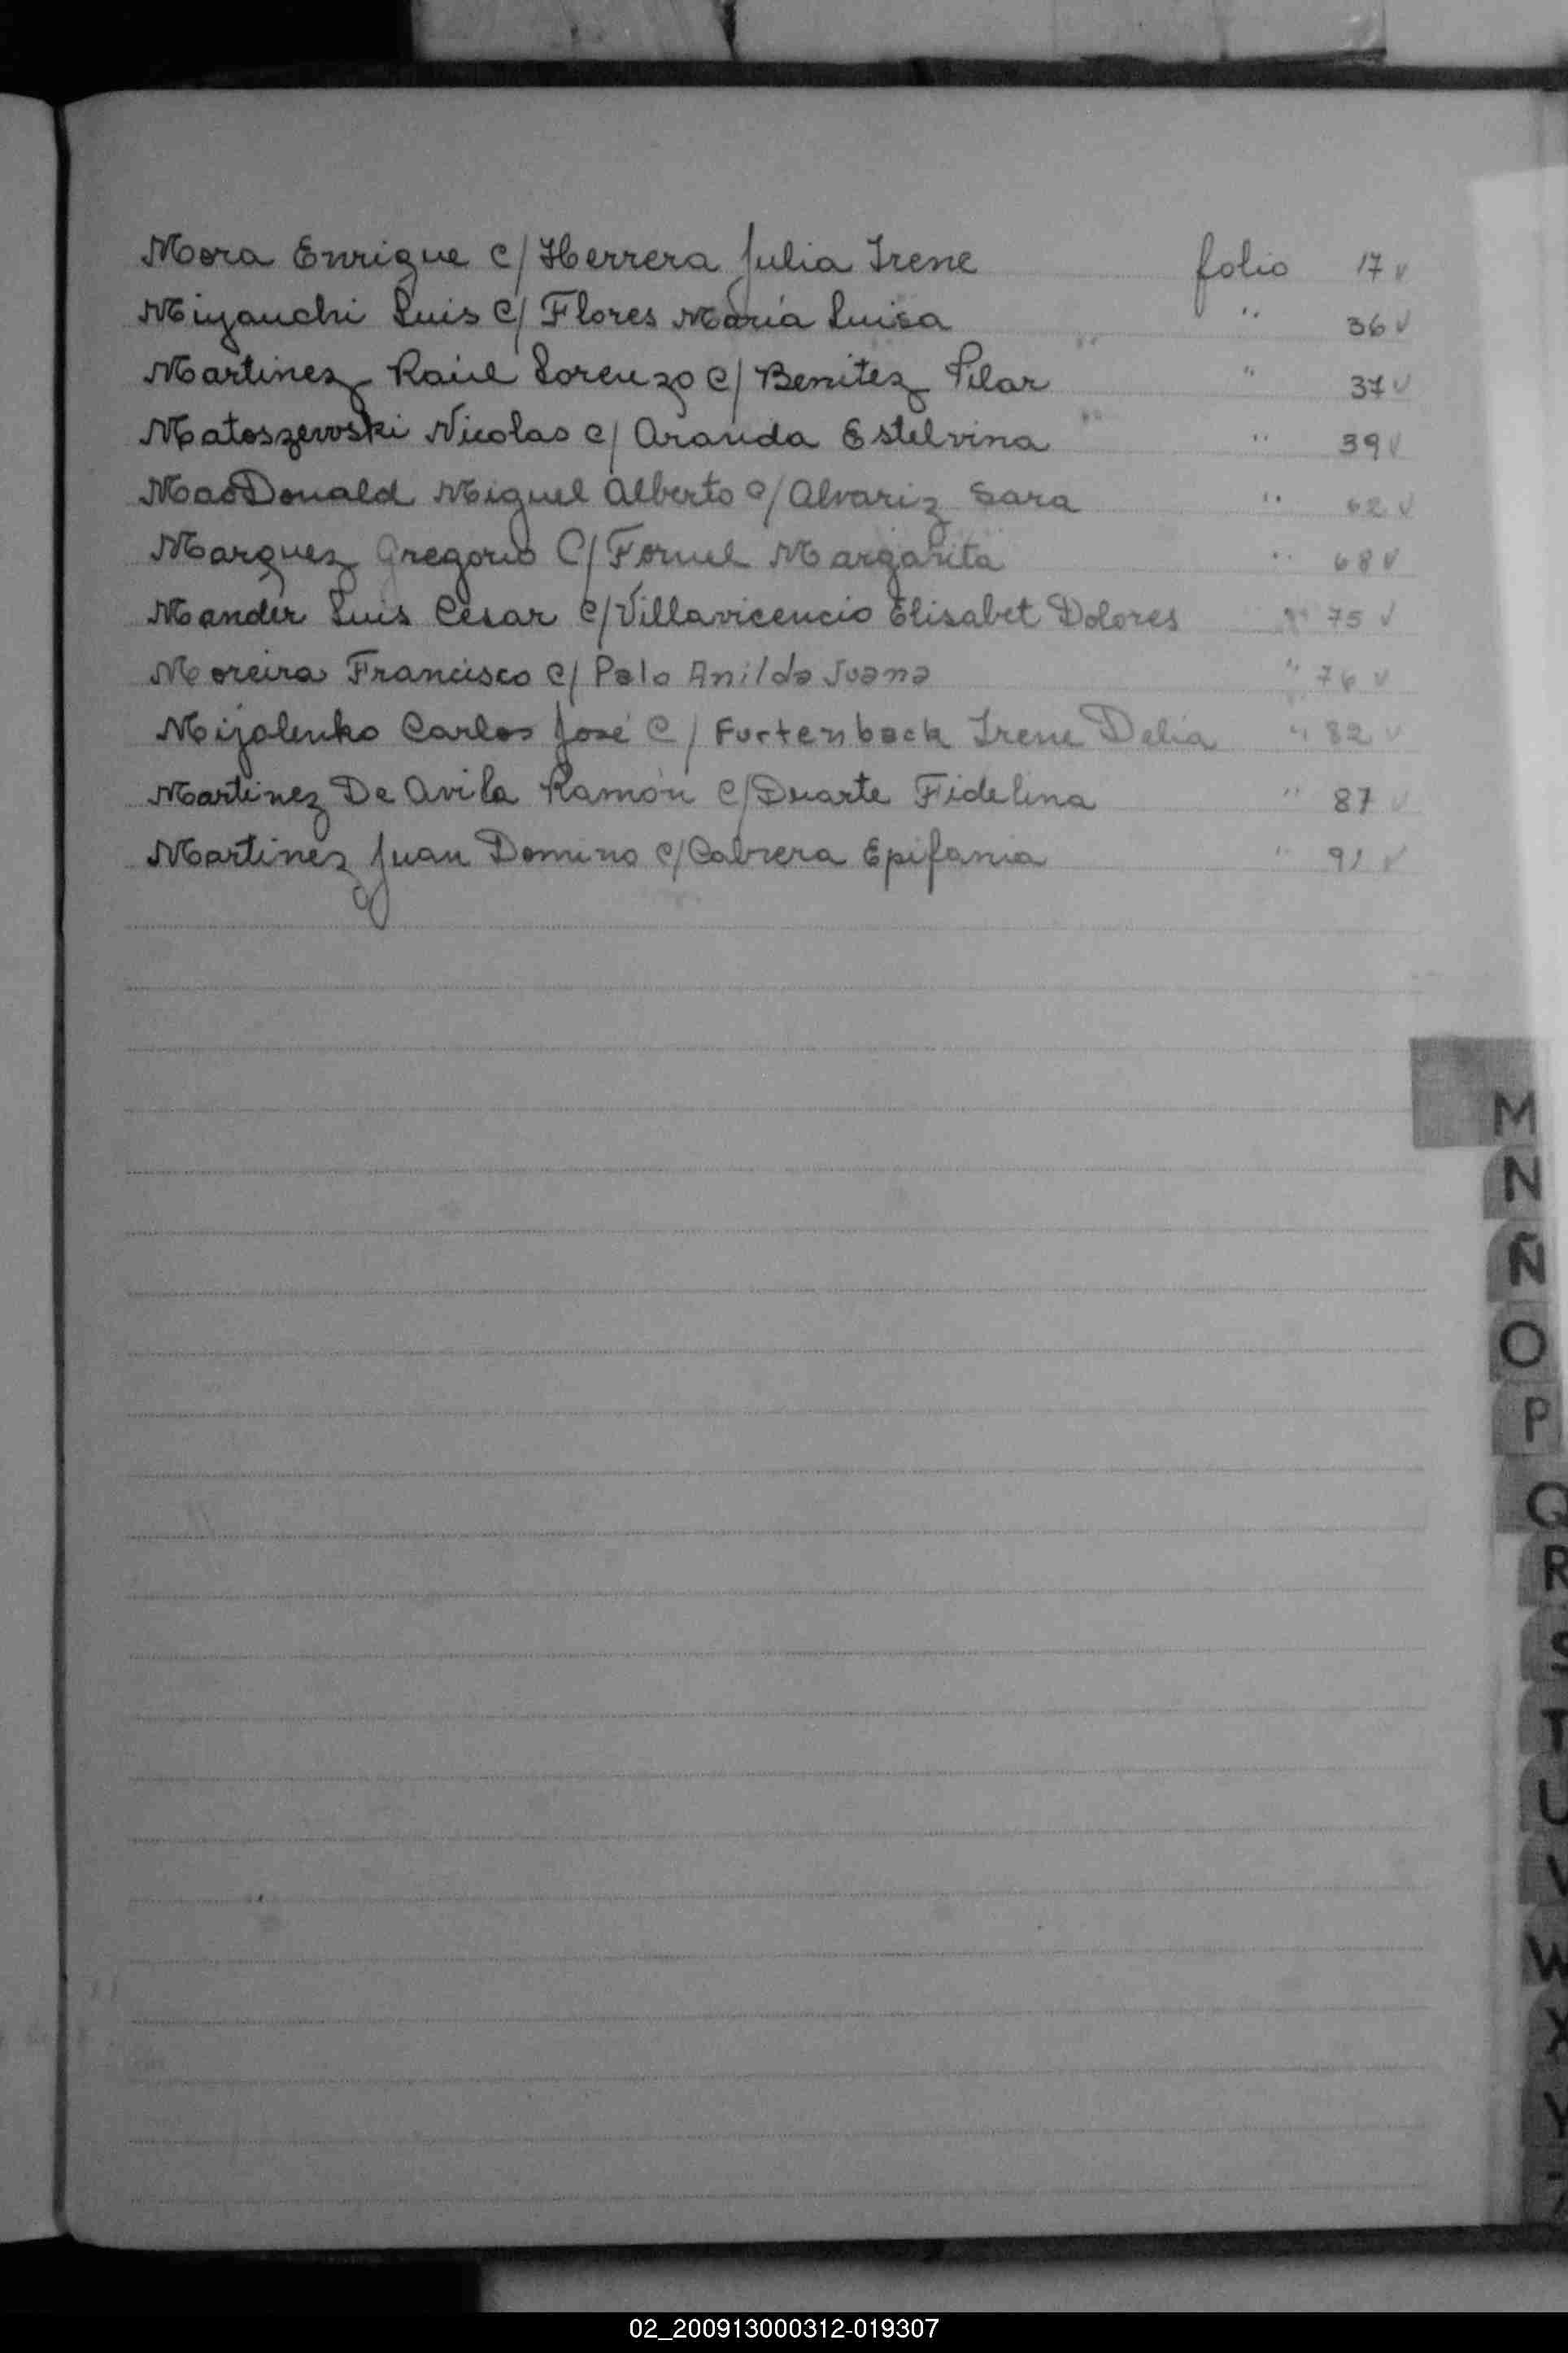 Mora Enrique c/ Herrera Julia Irene folio 17 v
Miyauchi Luis c/ Flores María Luisa " 36 v
Martinez Raúl Lorenzo c/ Benitez Pilar " 37 v
Matoszewski Nicolas c/ Aranda Estelvina " 39 v
MacDonald Miguel Alberto c/ Alvariz Sara " 62 v
Marquez Gregorio C/ Foruel Margarita " 68 v
Mander Luis Cesar c/ Villavicencio Elisabet Dolores " 75 v
Moreira Francisco c/ Palo Anilda Juana " 76 v
Mijalenko Carlos José C/ Furtenback Irene Delia " 82 v
Martinez De Avila Ramón c/ Duarte Fidelina " 87 v
Martinez Juan Domino c/ Cabrera Epifania " 91 v
M
N
Ñ
O
P
Q
R
S
T
U
V
W
X
Y
Z
02_200913000312-019307